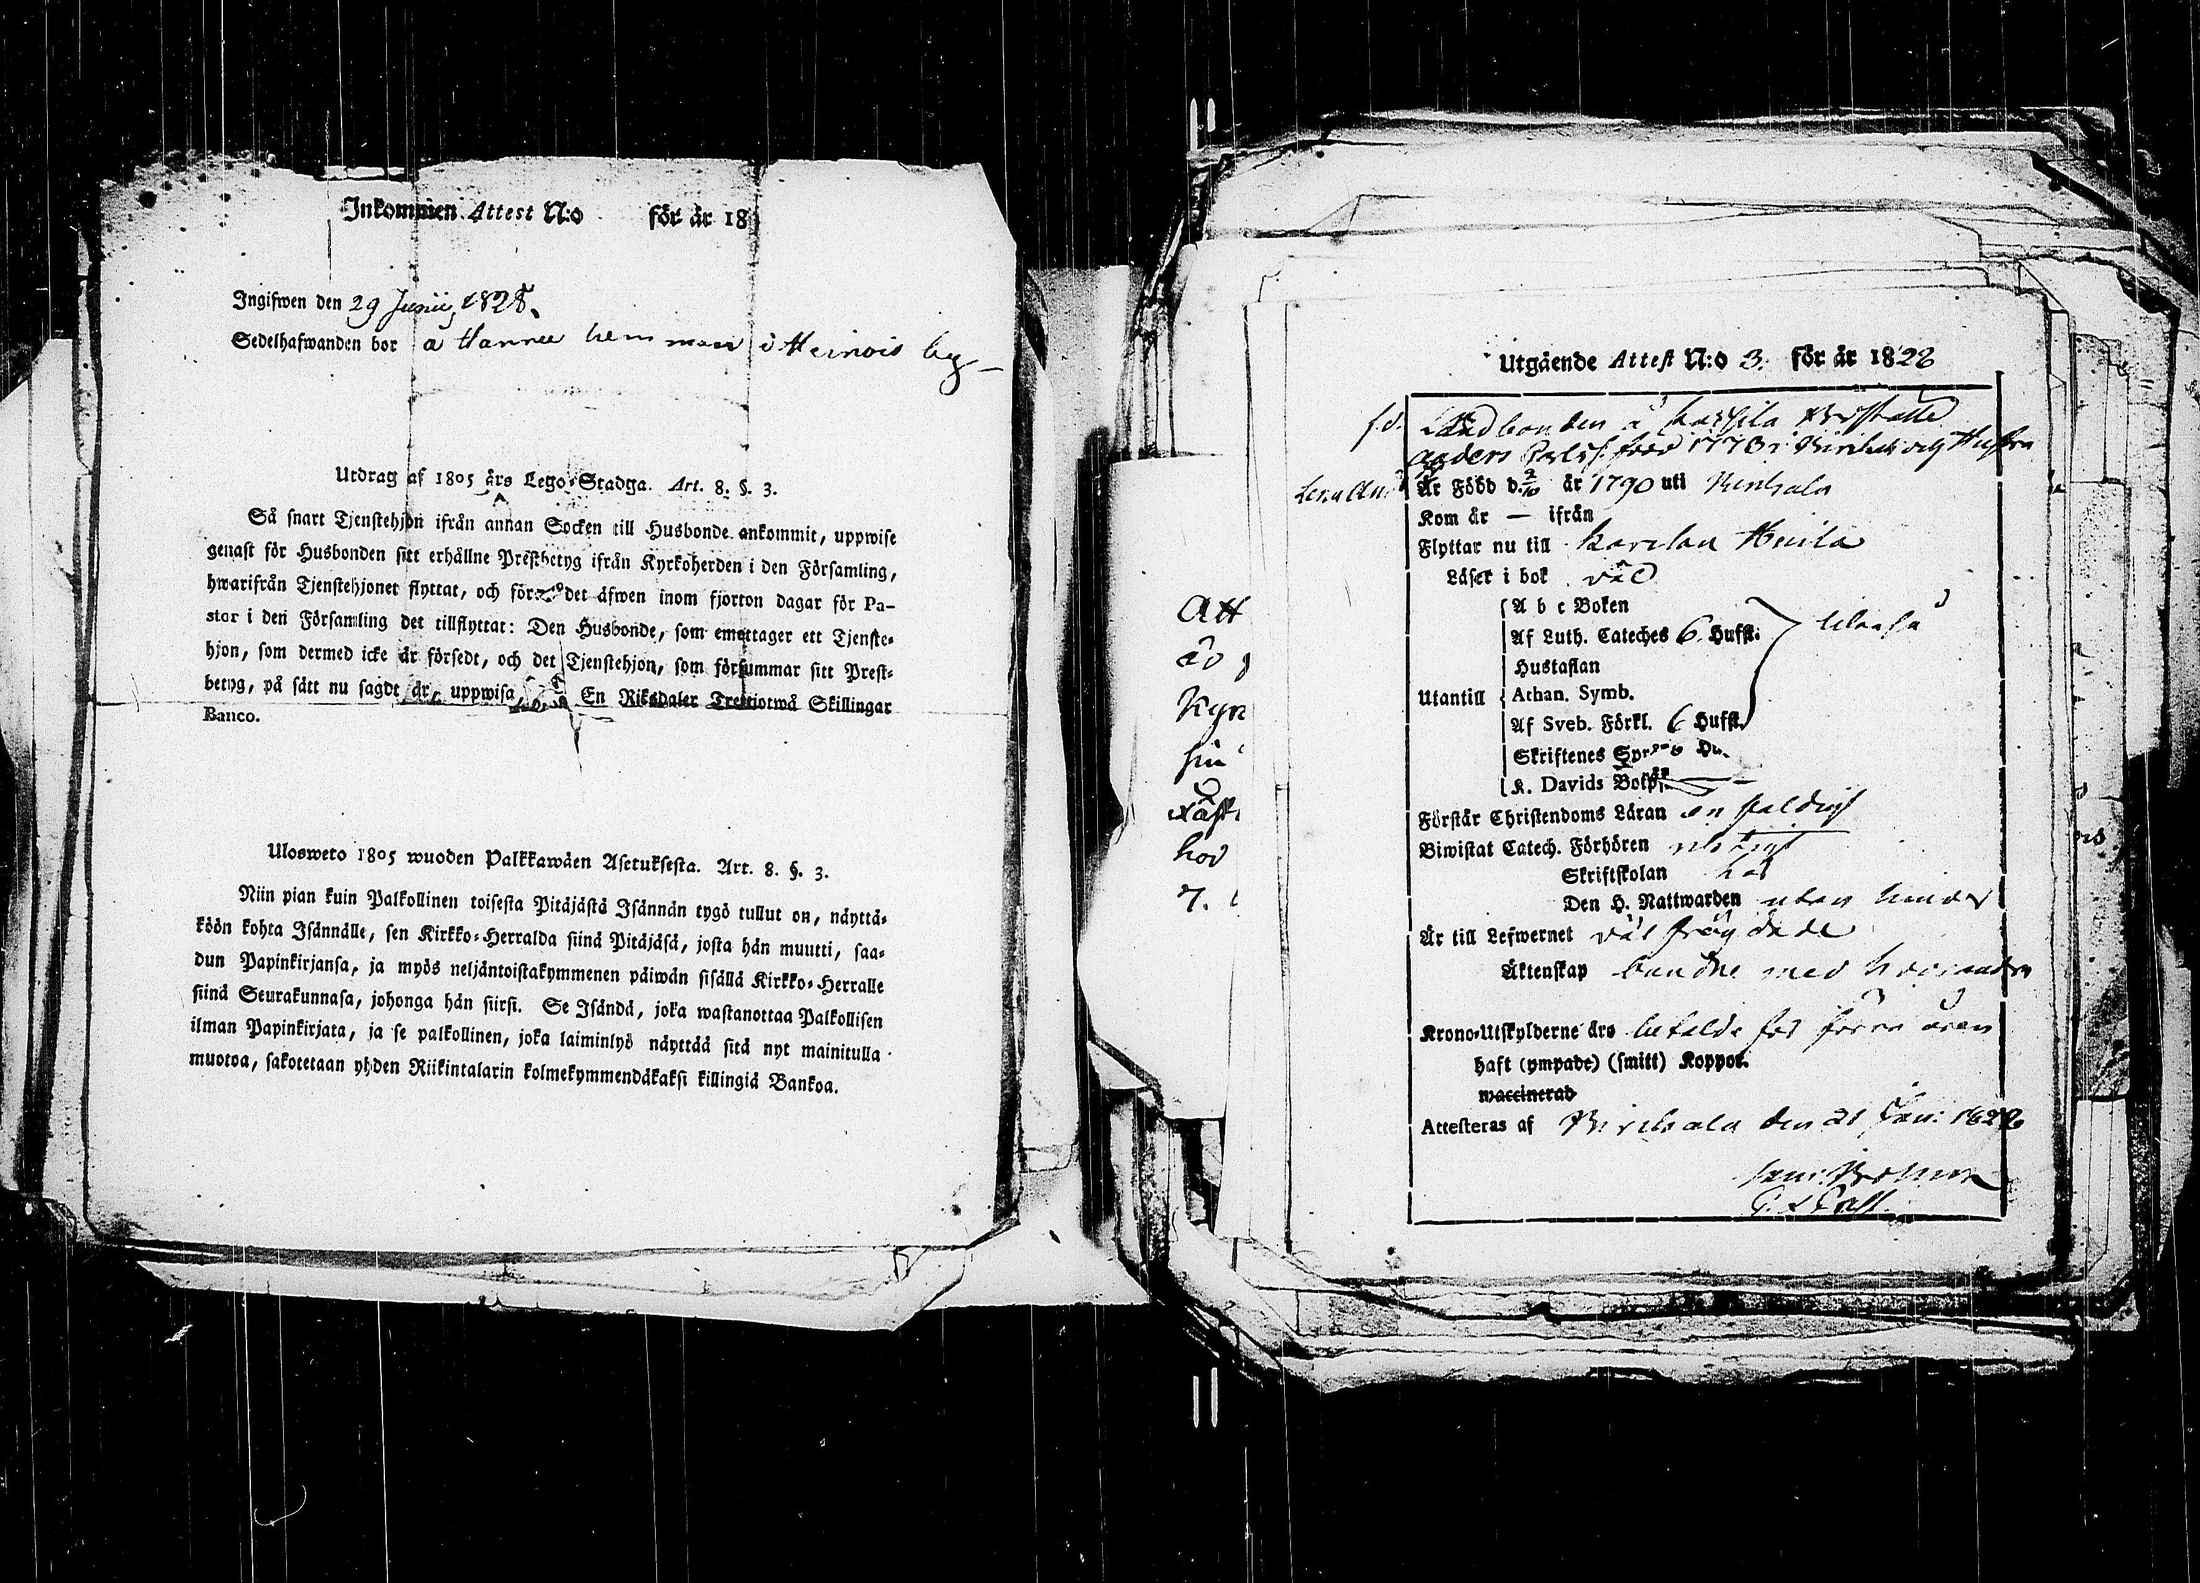 Inkommen Attest N:o för år 18
Ingifwen den 29 Junii 1828.
Sedelhafwanden bor å Hannu hemman i Heinois by
Utdrag af 1805 års Lego-Stadga. Art. 8. §. 3.
Så snart Tjenstehjon ifrån annan Socken till Husbonde ankommit, uppwise
genast för Husbonden sitt erhållne Prestbetyg ifrån Kyrkoherden i den Församling,
hwarifrån Tjenstehjonet flyttat, och förete det äfwen inom fjorton dagar för Pa-
stor i den Församling det tillflyttat: Den Husbonde, som emottager ett Tjenste-
hjon, som dermed icke är försedt, och det Tjenstehjon, som försummar sitt Prest-
betyg, på sätt nu sagdt är, uppwisa, En Riksdaler Trettiotwå Skillingar
Banco.
Ulosweto 1805 wuoden Palkkawäen Asetuksesta. Art. 8. §. 3.
Niin pian kuin Palkollinen toisesta Pitäjästä Isännän tygö tullut on, näyttä-
köön kohta Isännälle, sen Kirkko-Herralda siinä Pitäjäsä, josta hän muutti, saa-
dun Papinkirjansa, ja myös neljäntoistakymmenen päiwän sisällä Kirkko-Herralle
siinä Seurakunnasa, johonga hän siirsi. Se Isändä, joka wastanottaa Palkollisen
ilman Papinkirjata, ja se palkollinen, joka laiminlyö näyttää sitä nyt mainitulla
muotoa, sakotetaan yhden Riikintalarin kolmekymmendäkaksi killingiä Bankoa.
Att
Kyr
hov
7.
Utgående Attest N:o 3. för år 1828
f.d. Landbonden å
Anders född 1778 i Hustru
Lena är Född d. 2/10 år 1790 uti
Kom år — ifrån
Flyttar nu till Karelan Heitla
Läser i bok väl
A b c Boken
Af Luth. Cateches 6. Hufst.
Hustaflan
Utantill Athan. Symb.
Af Sveb. Förkl. 6 Hufst.
Skriftenes
K. Davids Botps.
Förstår Christendoms Läran enfaldigt
Biwistat Catech. Förhören
Skriftskolan
Den H. Nattwarden utan hinder
Är till Lefwernet väl frägdade
Äktenskap bundne med hvarandra
Krono-Utskylderne års betalde för förra åren
haft (ympade) (smitt) Koppor.
waccinerad
Attesteras af den 21 Jan: 1828